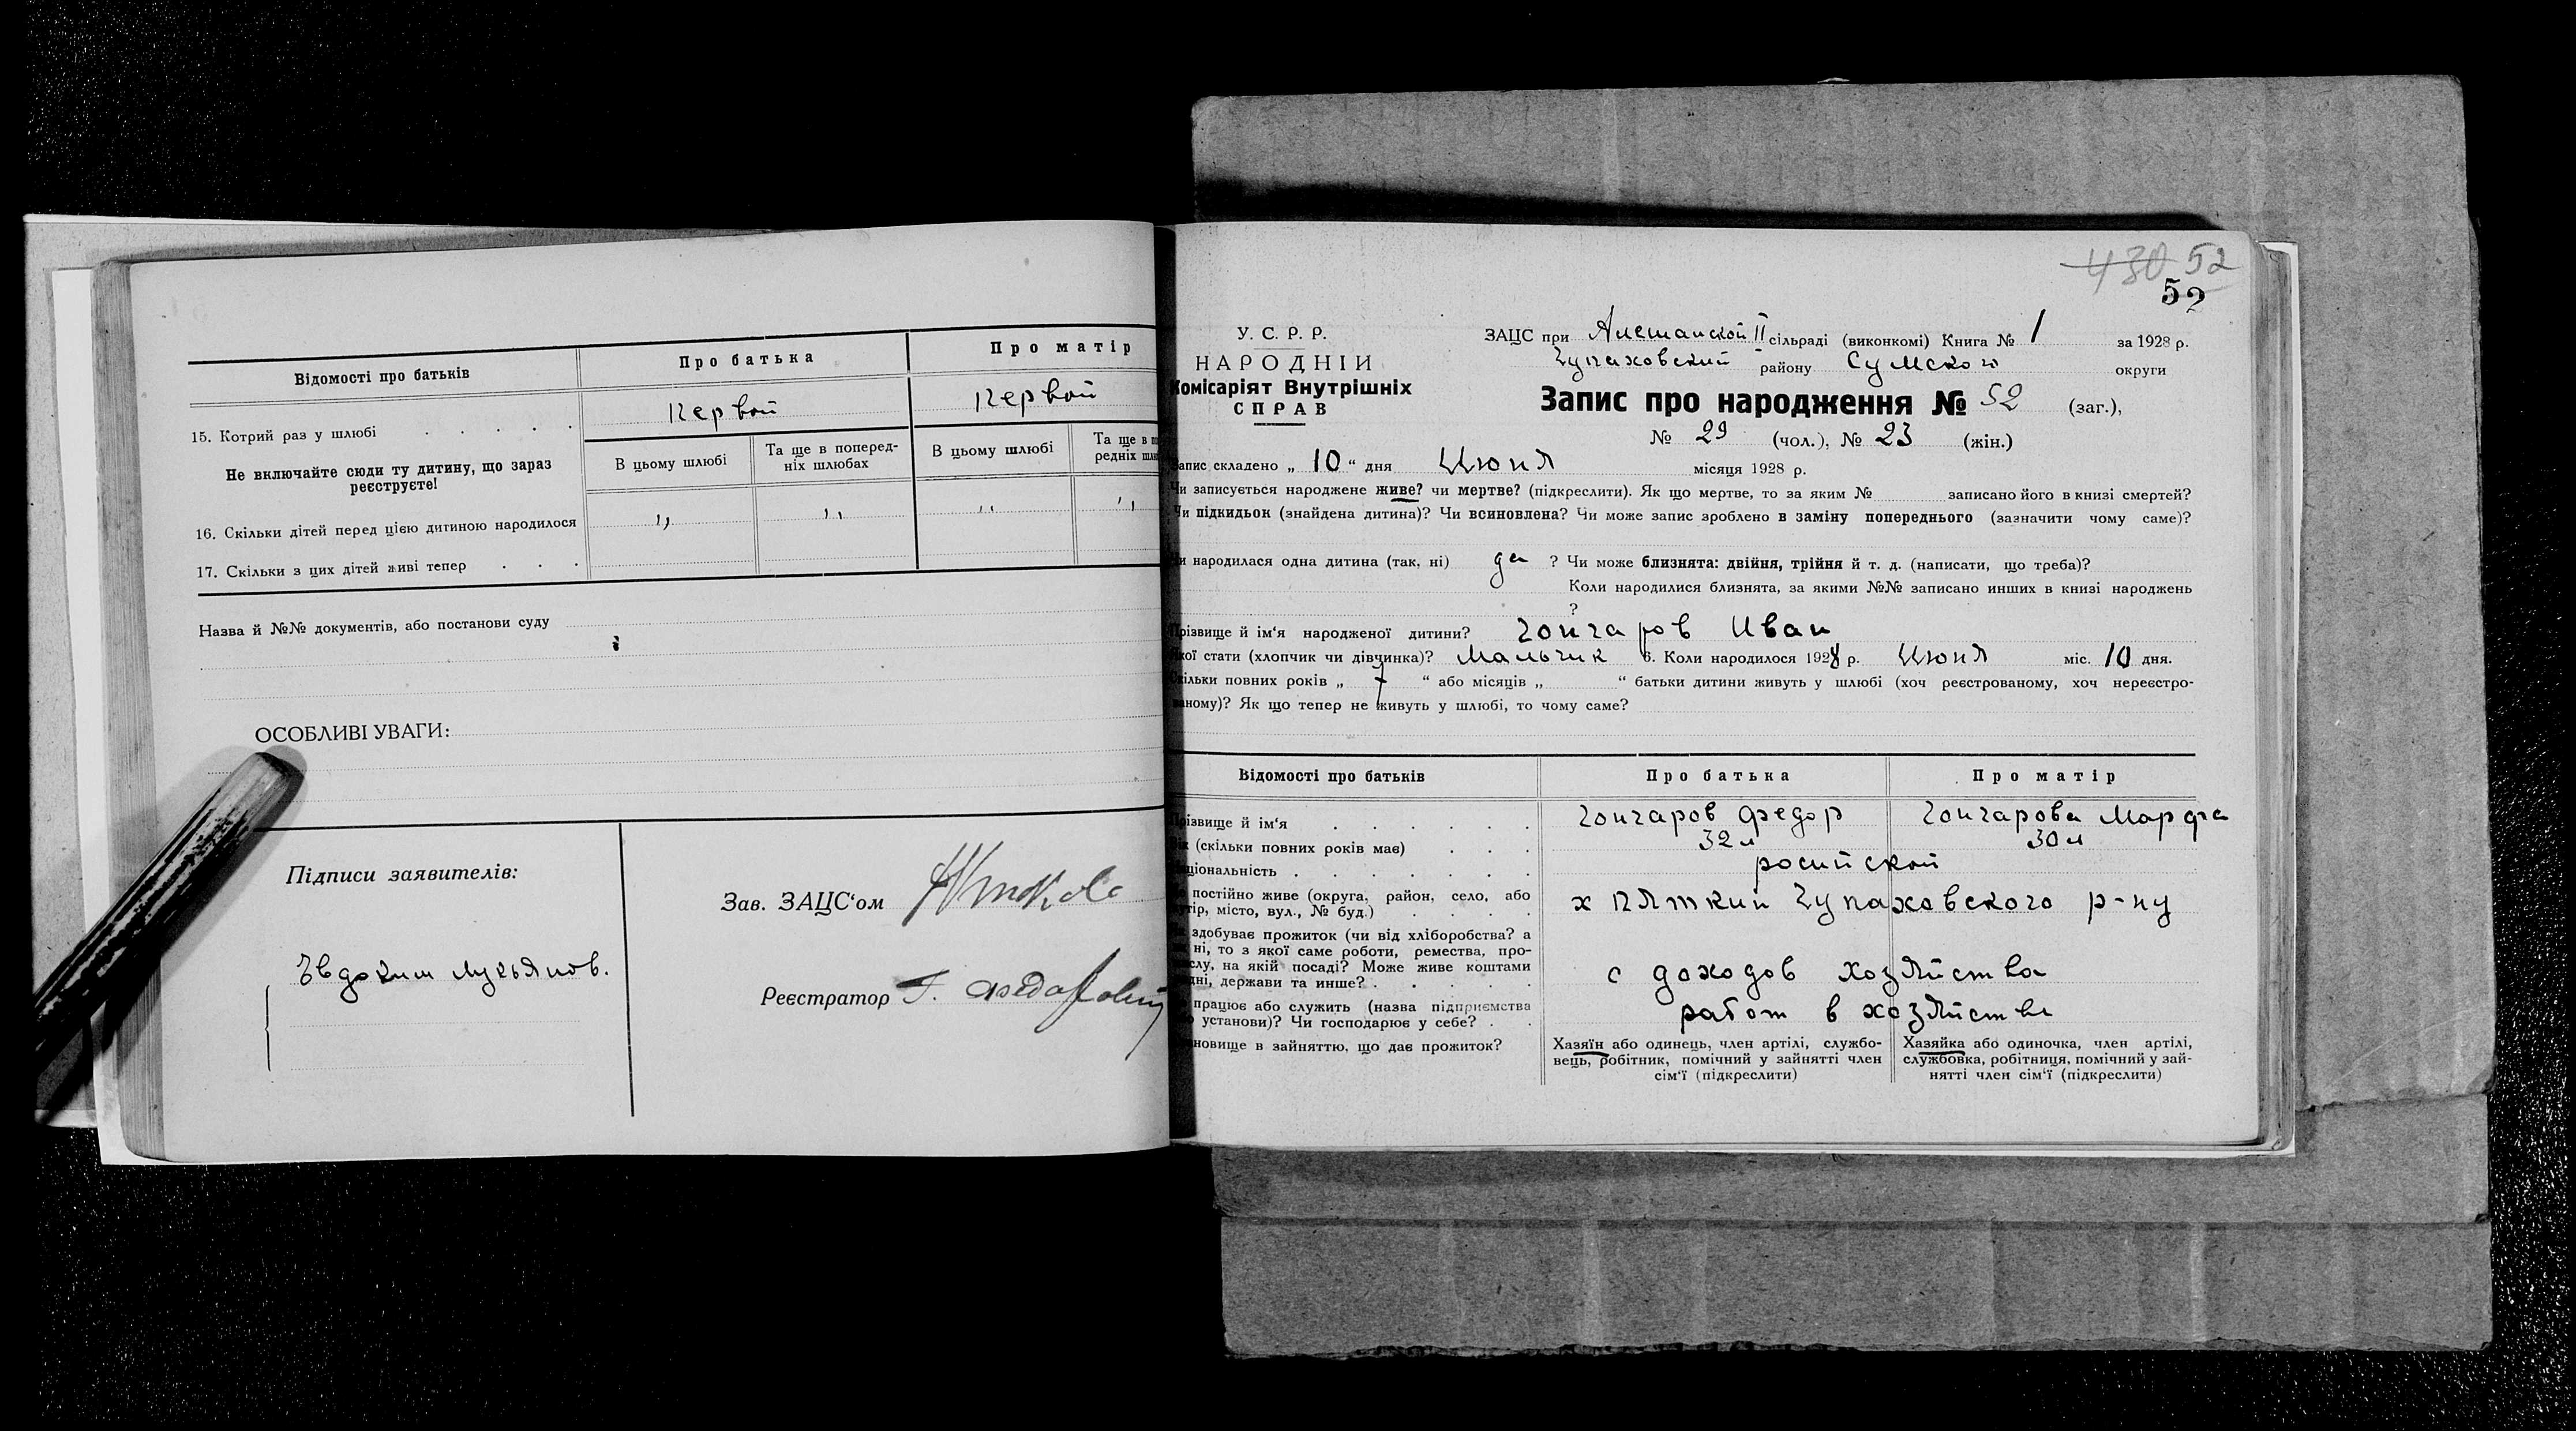 Відомості про батьків
Про батька
Про матір
15. Котрий раз у шлюбі
Первой
Первой
Не включайте сюди ту дитину, що зараз
реєструєте!
В цьому шлюбі
Та ще в поперед-
ніх шлюбах
В цьому шлюбі
Та ще в
редніх
16. Скільки дітей перед цією дитиною народилося
„
„
„
„
17. Скільки з цих дітей живі тепер
Назва й №№ документів, або постанови суду
ОСОБЛИВІ УВАГИ:
Підписи заявителів:
Евдоким Лукьянов.
Зав. ЗАЦС‘ом
Реєстратор Г.
430 52
52
У. С. Р. Р.
НАРОДНІЙ
Комісаріят Внутрішніх
СПРАВ
ЗАЦС при Алешанской II сільраді (виконкомі) Книга № 1 за 1928 р.
Чупаховский району Сумского округи
Запис про народження № 52 (заг.),
№ 29 (чол.), № 23 (жін.)
Запис складено „ 10 “ дня Июня місяця 1928 р.
Чи записується народжене живе? чи мертве? (підкреслити). Як що мертве, то за яким № записано його в книзі смертей?
Чи підкидьок (знайдена дитина)? Чи всиновлена? Чи може запис зроблено в заміну попереднього (зазначити чому саме)?
и народилася одна дитина (так, ні) да ? Чи може близнята: двійня, трійня й т. д. (написати, що треба)?
Коли народилися близнята, за якими №№ записано инших в книзі народжень
?
різвище й ім‘я народженої дитини? Гончаров Иван
кої стати (хлопчик чи дівчинка)? Мальчик 6. Коли народилося 1928 р. Июня міс. 10 дня.
кільки повних років „ 7 “ або місяців „ “ батьки дитини живуть у шлюбі (хоч реєстрованому, хоч нереєстро-
аному)? Як що тепер не живуть у шлюбі, то чому саме?
Відомості про батьків
Про батька
Про матір
різвище й ім‘я
Гончаров Федор
Гончарова Марфа
(скільки повних років має)
32 л
30 л
ціональність
росийской
постійно живе (округа, район, село, або
тір, місто, вул., № буд.)
х Пяткин Чупаховского р-ну
здобуває прожиток (чи від хліборобства? а
ні, то з якої саме роботи, ремества, про-
слу, на якій посаді? Може живе коштами
дні, держави та инше?
с доходов хозяйства
працює або служить (назва підприємства
установи)? Чи господарює у себе?
работ в хозяйстве
новище в зайняттю, що дає прожиток?
Хазяїн або одинець, член артілі, службо-
вець, робітник, помічний у зайнятті член
сім‘ї (підкреслити)
Хазяйка або одиночка, член артілі,
службовка, робітниця, помічний у зай-
нятті член сім‘ї (підкреслити)